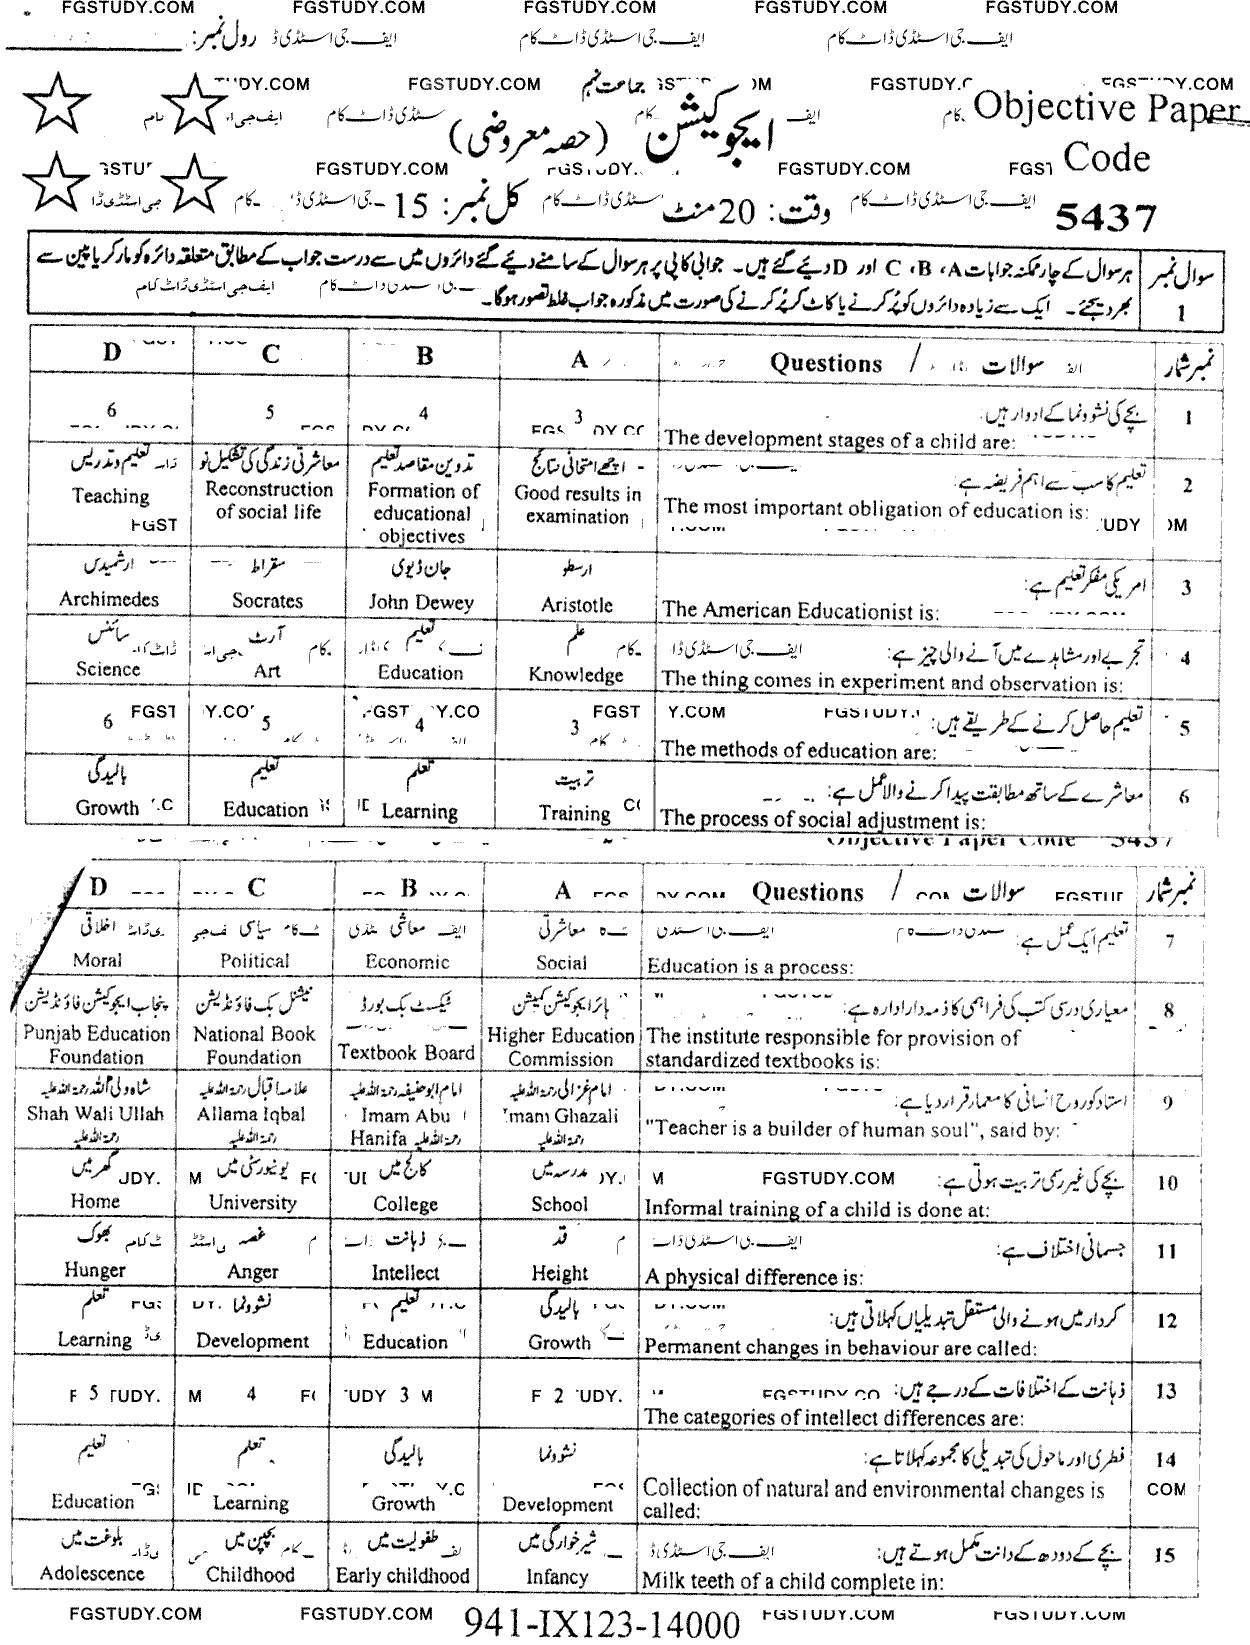 FGSTUDY.COM FGSTUDY.COM FGSTUDY.COM FGSTUDY.COM FGSTUDY.COM
رول نمبر: ایف جی اسٹڈی ڈاٹ کام ایف جی اسٹڈی ڈاٹ کام
جماعت نہم
FGSTUDY.COM
Objective Paper
ایجوکیشن (حصہ معروضی)
Code
FGSTUDY.COM FGSTUDY.COM
وقت: 20 منٹ کل نمبر: 15
5437
سوال نمبر 1
ہر سوال کے چار ممکنہ جوابات A، B، C اور D دیئے گئے ہیں۔ جوابی کاپی پر ہر سوال کے سامنے دیئے گئے دائروں میں سے درست جواب کے مطابق متعلقہ دائرہ کو مارکر یا پین سے
بھر دیجئے۔ ایک سے زیادہ دائروں کو پُر کرنے یا کاٹ کر پُر کرنے کی صورت میں مذکورہ جواب غلط تصور ہوگا۔
D C B A Questions / سوالات نمبر شمار
1 بچے کی نشوونما کے ادوار ہیں:
The development stages of a child are:
3 4 5 6
2 تعلیم کا سب سے اہم فریضہ ہے:
The most important obligation of education is:
اچھے امتحانی نتائج
Good results in
examination
تدوین مقاصد تعلیم
Formation of
educational
objectives
معاشرتی زندگی کی تشکیل نو
Reconstruction
of social life
تعلیم و تدریس
Teaching
3 امریکی مفکر تعلیم ہے:
The American Educationist is:
ارسطو
Aristotle
جان ڈیوی
John Dewey
سقراط
Socrates
ارشمیدس
Archimedes
4 تجربے اور مشاہدے میں آنے والی چیز ہے:
The thing comes in experiment and observation is:
علم
Knowledge
تعلیم
Education
آرٹ
Art
سائنس
Science
5 تعلیم حاصل کرنے کے طریقے ہیں:
The methods of education are:
3 4 5 6
6 معاشرے کے ساتھ مطابقت پیدا کرنے والا عمل ہے:
The process of social adjustment is:
تربیت
Training
تعلم
Learning
تعلیم
Education
بالیدگی
Growth
Objective Paper Code 5437
D C B A Questions / سوالات نمبر شمار
7 تعلیم ایک عمل ہے:
Education is a process:
معاشرتی
Social
معاشی
Economic
سیاسی
Political
اخلاقی
Moral
8 معیاری درسی کتب کی فراہمی کا ذمہ دار ادارہ ہے:
The institute responsible for provision of
standardized textbooks is:
ہائر ایجوکیشن کمیشن
Higher Education
Commission
ٹیکسٹ بک بورڈ
Textbook Board
نیشنل بک فاؤنڈیشن
National Book
Foundation
پنجاب ایجوکیشن فاؤنڈیشن
Punjab Education
Foundation
9 استاد کو روح انسانی کا معمار قرار دیا ہے:
"Teacher is a builder of human soul", said by:
امام غزالی رحمۃ اللہ علیہ
Imam Ghazali
رحمۃ اللہ علیہ
امام ابو حنیفہ رحمۃ اللہ علیہ
Imam Abu
Hanifa رحمۃ اللہ علیہ
علامہ اقبال رحمۃ اللہ علیہ
Allama Iqbal
رحمۃ اللہ علیہ
شاہ ولی اللہ رحمۃ اللہ علیہ
Shah Wali Ullah
رحمۃ اللہ علیہ
10 بچے کی غیر رسمی تربیت ہوتی ہے:
FGSTUDY.COM
Informal training of a child is done at:
مدرسہ میں
School
کالج میں
College
یونیورسٹی میں
University
گھر میں
Home
11 جسمانی اختلاف ہے:
A physical difference is:
قد
Height
ذہانت
Intellect
غصہ
Anger
بھوک
Hunger
12 کردار میں ہونے والی مستقل تبدیلیاں کہلاتی ہیں:
Permanent changes in behaviour are called:
بالیدگی
Growth
تعلیم
Education
نشوونما
Development
تعلم
Learning
13 ذہانت کے اختلافات کے درجے ہیں:
The categories of intellect differences are:
2 3 4 5
14 فطری اور ماحول کی تبدیلی کا مجموعہ کہلاتا ہے:
Collection of natural and environmental changes is
called:
نشوونما
Development
بالیدگی
Growth
تعلم
Learning
تعلیم
Education
15 بچے کے دودھ کے دانت مکمل ہوتے ہیں:
Milk teeth of a child complete in:
شیر خوارگی میں
Infancy
طفولیت میں
Early childhood
بچپن میں
Childhood
بلوغت میں
Adolescence
FGSTUDY.COM FGSTUDY.COM 941-IX123-14000 FGSTUDY.COM FGSTUDY.COM